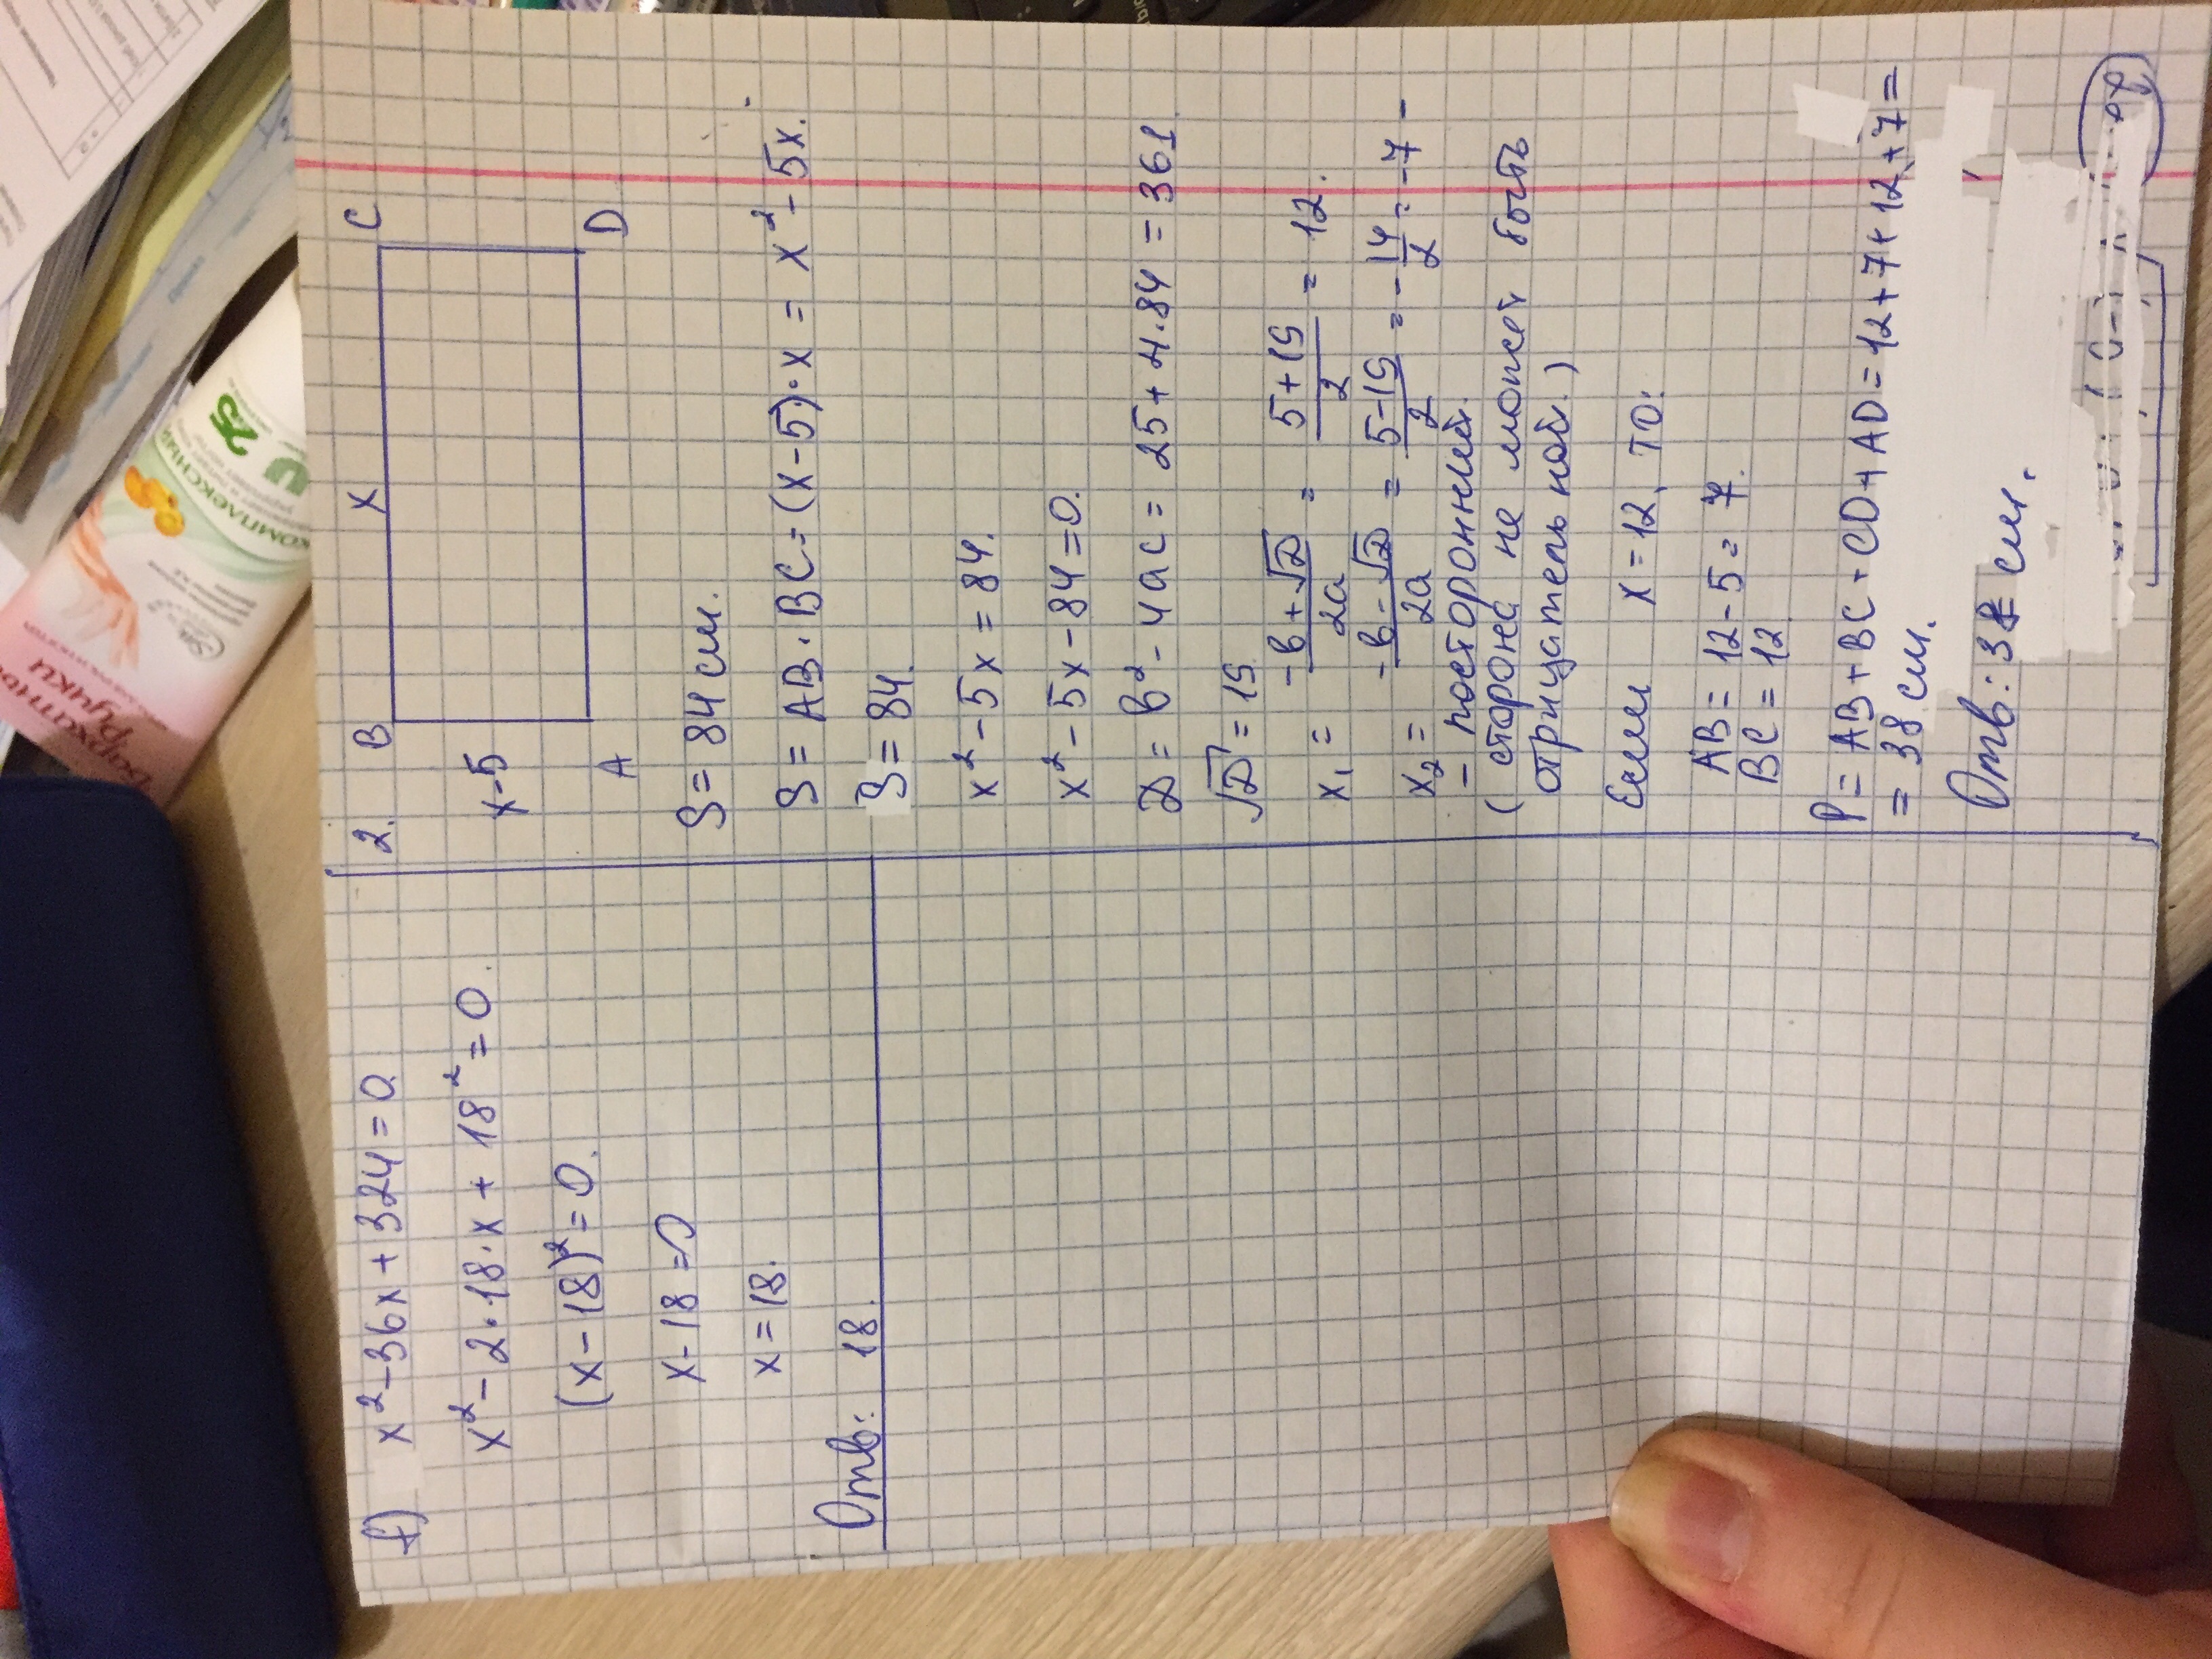 f) x² - 36x + 324 = 0
x² - 2·18·x + 18² = 0.
(x - 18)² = 0.
x - 18 = 0
x = 18.
Отв: 18.
2.
B x C
x-5
A D
S = 84 см.
S = AB · BC = (x-5)·x = x² - 5x.
S = 84.
x² - 5x = 84.
x² - 5x - 84 = 0.
D = b² - 4ac = 25 + 4·84 = 361
√D = 19
x₁ = -b+√D/2a = 5+19/2 = 12.
x₂ = -b-√D/2a = 5-19/2 = -14/2 = -7 -
- посторонний.
( сторона не может быть
отрицательной.)
Если x = 12, то:
AB = 12 - 5 = 7.
BC = 12
P = AB + BC + CD + AD = 12 + 7 + 12 + 7 =
= 38 см.
Отв: 38 см.
КОМПЛЕКСНЫЙ
25
Бархатные
Ручки